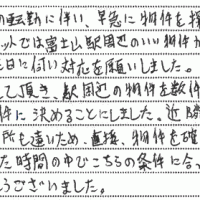 の転勤に伴い、早急に物件を探
ットでは富士山駅周辺のいい物件が
土日に伺い対応を願いしました。
して頂き、駅周辺の物件を数件
件に決めることにしました。近隣
所も遠いため、直接、物件を確
た時間の中でこちらの条件に合っ
うございました。